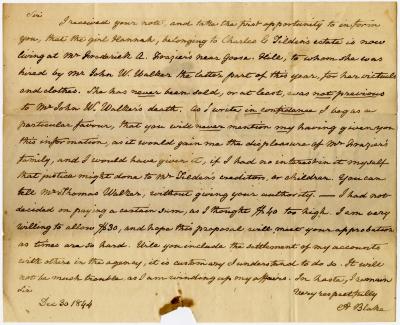 Sir
I received your note, and take the first opportunity to inform
you, that the girl Hannah, belonging to Charles C. Tilden's estate is now
living at Mr Frederick A. Frazier's near Goose Hill, to whom she was
hired by Mr John W. Walker the latter part of this year, for her victuals
and clothes. She has never been sold, or at least, was not previous
to Mr John W. Walker's death. As I write in confidence I beg as a
particular favour, that you will never mention my having given you
this information, as it would gain me the displeasure of Mr Frazier's
family, and I would have given it, if I had no interest in it myself
that justice might done to Mr Tilden's creditors, or children. You can
tell Mr Thomas Walker, without giving your authority — I had not
decided on paying a certain sum, as I thought $40 too high. I am very
willing to allow $30, and hope this proposal will meet your approbation
as times are so hard. Will you include the settlement of my accounts
with others in the agency, it is customary I understand to do so. It will
not be much trouble as I am winding up my affairs. In haste, I remain
Sir
Very respectfully
Dec 30 1844
A Blake